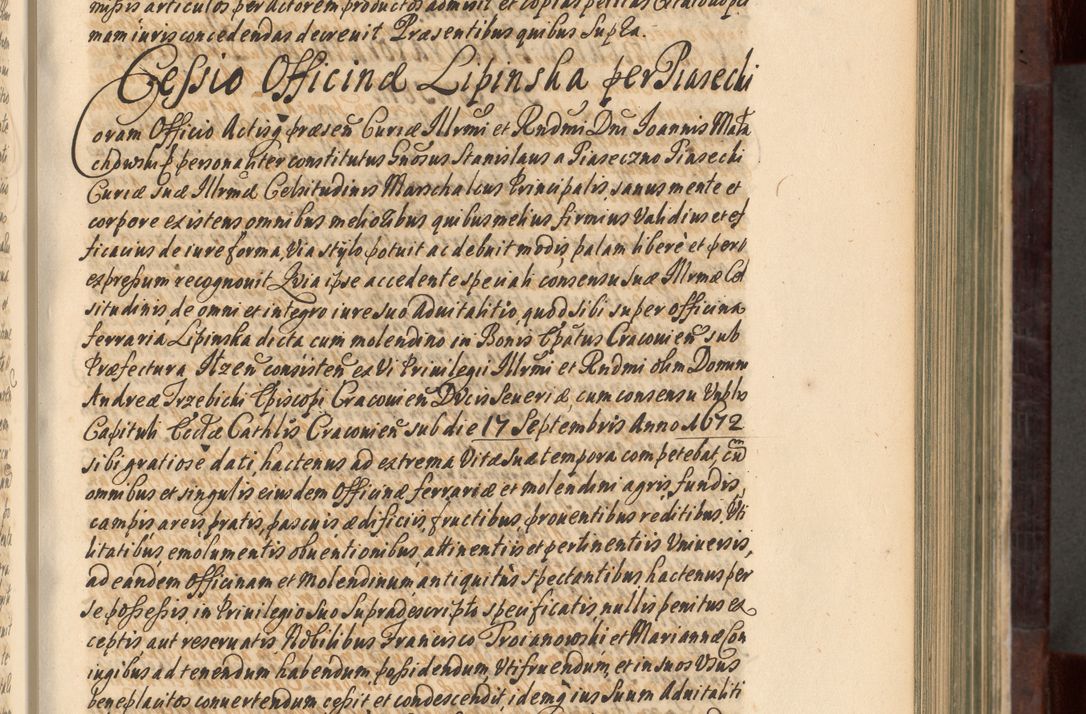 missis articulos per actorem productos admisit et copias petitas
mam iuris concedendas decreuit. Præsentibus quibus supra.
Cessio Officinæ Lipinska per Piasecki
Coram Officio Actisq præsen Curiæ Illrmi et Rndmi Dni Ioannis Mała
chowski personaliter constitutus Gnosus Stanislaus a Piaseczno Piasecki
Curiæ suæ Illrmæ Celsitudinis Marschalcus Principalis, sanus mente et
corpore existens omnibus melioribus quibus melius, firmius validius et ef
ficacius de iure forma, via stylo potuit ac debuit modis, palam liberè et per
expressum recognouit Quia ipse accedente speciali consensu suæ Illrmæ Cel
situdinis, de omni et integro iure suo Aduitalitio, quod sibi super officina
ferraria Lipinska dicta cum molendino in Bonis Epatus Cracouien sub
Præfectura Ilzen consisten ex vi Priuilegii Illrmi et Rndmi olim Domini
Andreæ Trzebicki Episcopi Cracouien Ducis Seueriæ, cum consensu Vnblis
Capituli Ecclæ Cathlis Cracouien sub die 17 Septembris Anno 1672
sibi gratiosè dati, hactenus ad extrema vitæ suæ tempora competebat, cū
omnibus et singulis eiusdem Officinæ ferrariæ et molendini agris, fundis,
campis areis, pratis, pascuis ædificiis, fructibus prouentibus reditibus, Vti
litatibus, emolumentis obuentionibus, attinentiis et pertinentiis vniuersis,
ad eandem Officinam et Molendinum, antiquitùs spectantibus hactenus per
se possessis, in Priuilegio suo supradescripto specificatis, nullis penitus ex
ceptis aut reseruatis, Nobilibus Francisco Troianowski et Mariannæ Con
iugibus ad tenendum habendum, possidendum, vtifruendum, et in suos vsus
beneplacitos conuertendum cessit et condescendit, idemq ius suum Aduitaliti